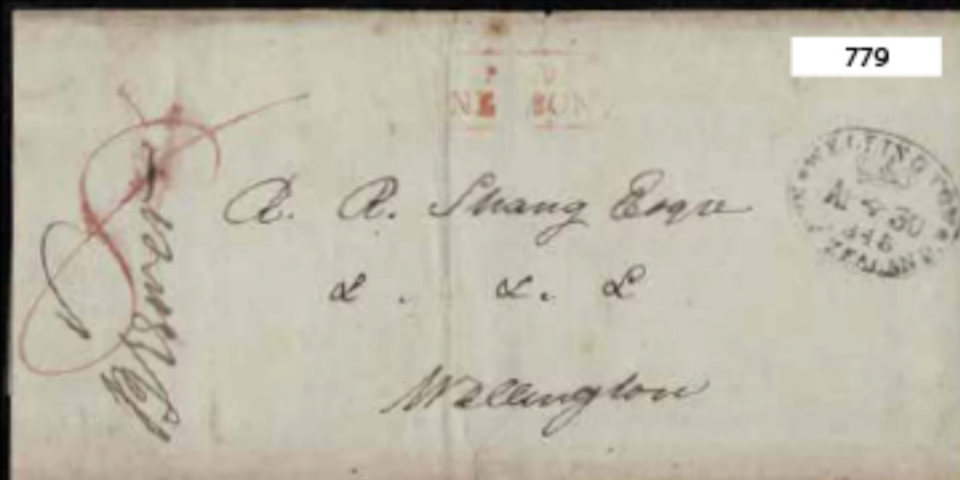 779
NELSON
WELLINGTON
ZEALAND
A. R. Shang Esqre
&. &. &
Wellington